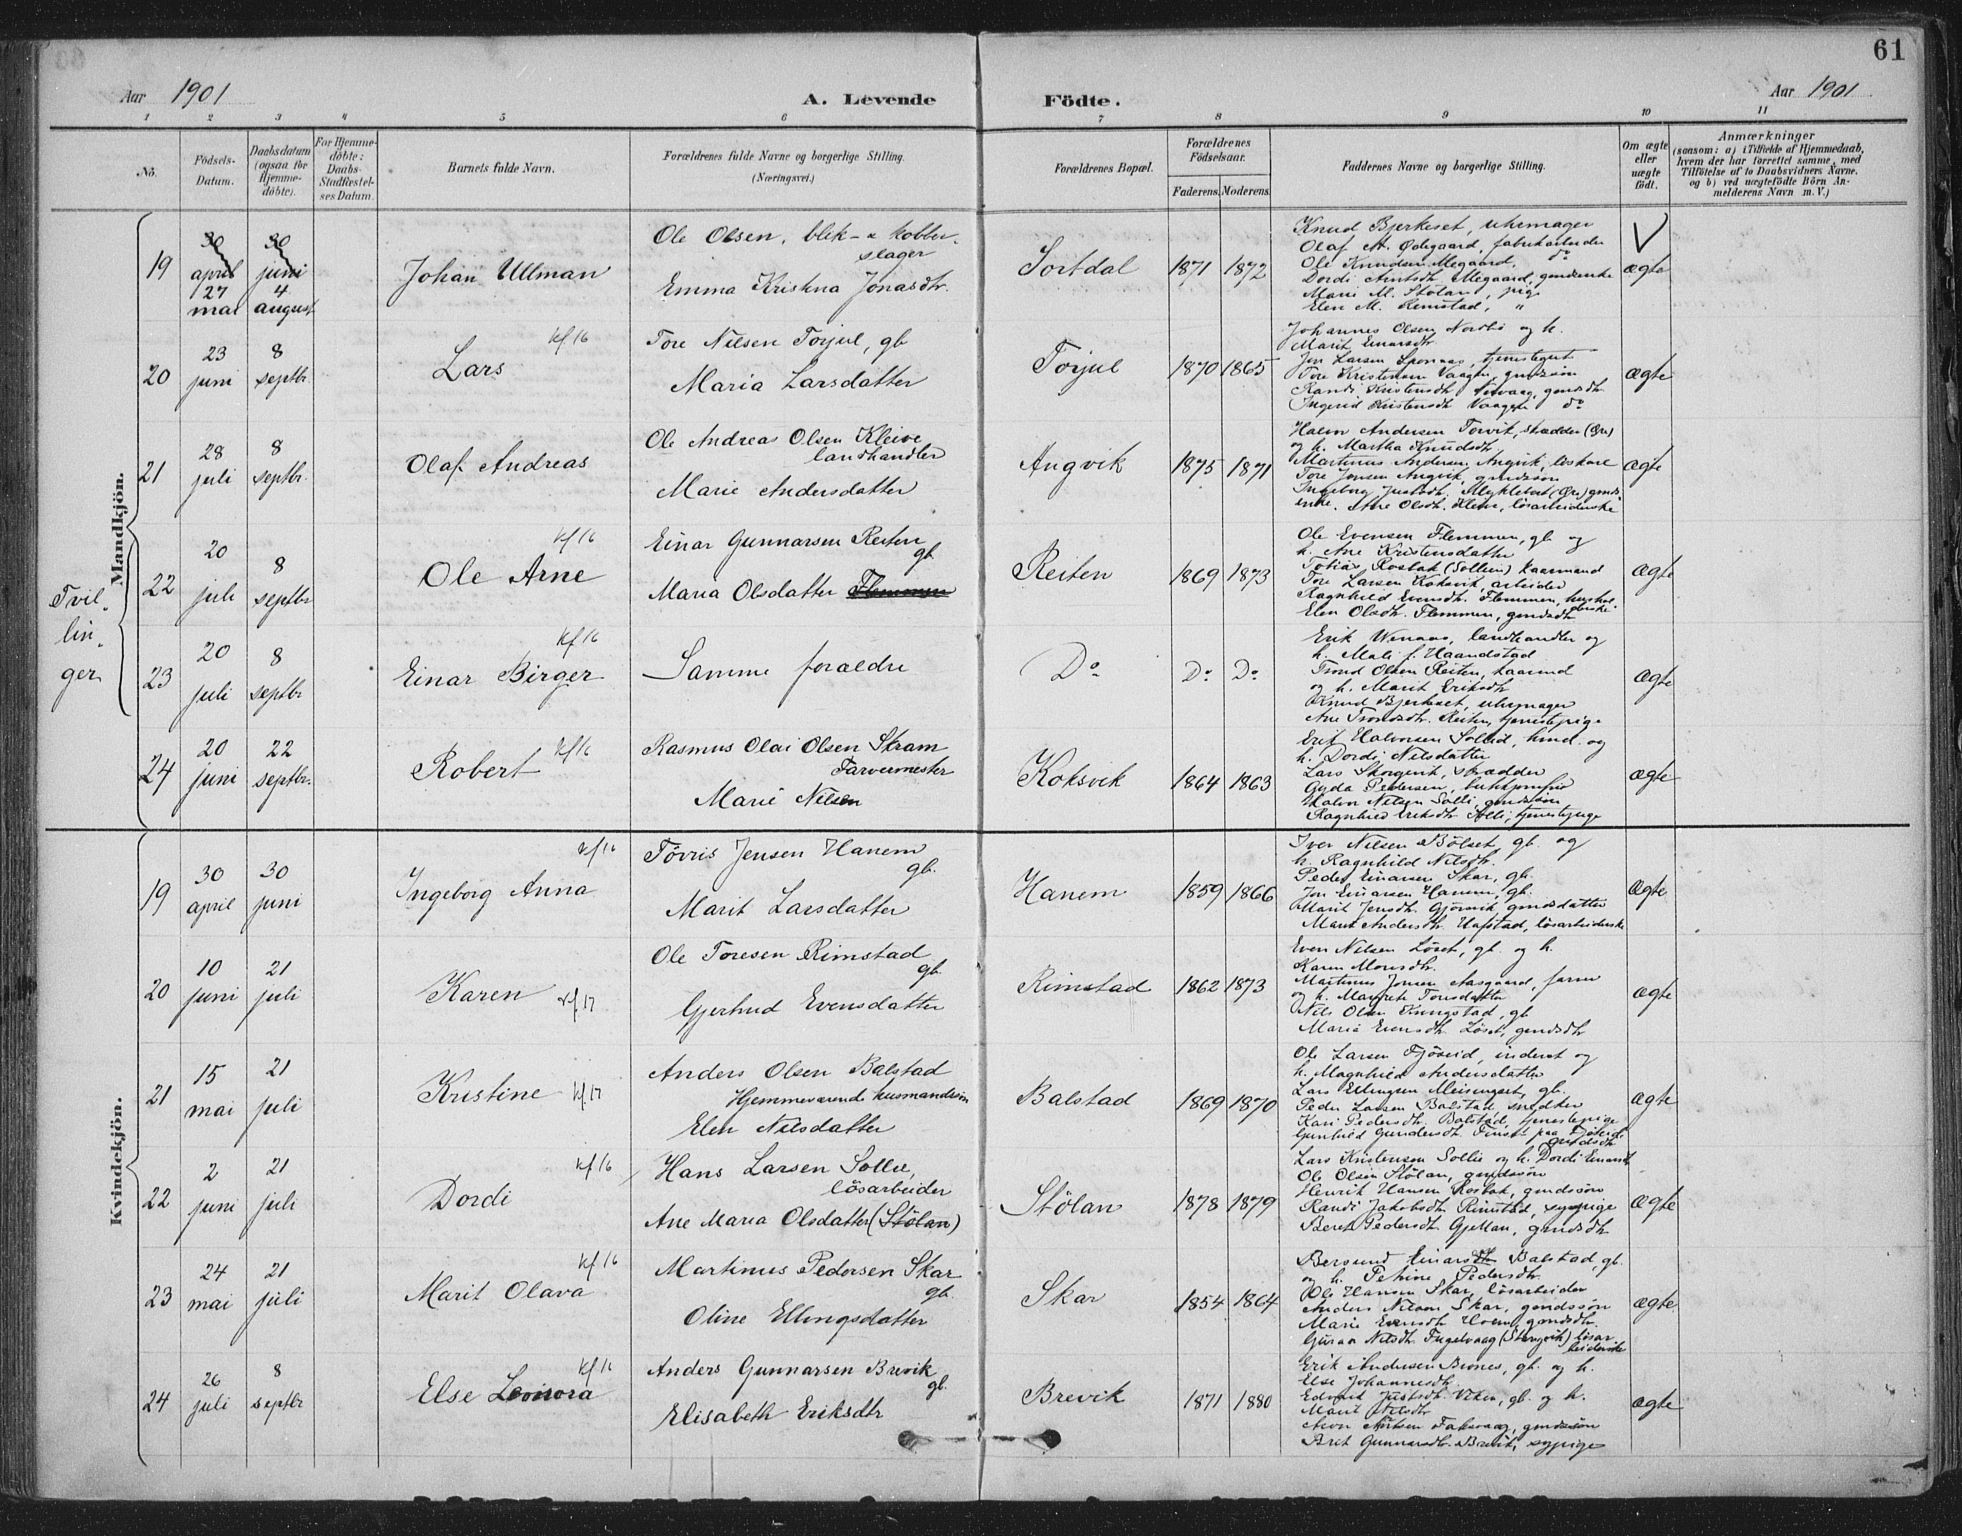 61
Aar 1901
A. Levende
Födte.
Aar 1901
1 2 3 4 5 6 7 8 9 10 11
No.
Födsels-Datum.
Daabsdatum (ogsaa for Hjemme-döbte).
For Hjemme-döbte: Daabs-Stadfæstel-ses Datum.
Barnets fulde Navn.
Forældrenes fulde Navne og borgerlige Stilling.
(Næringsvei.)
Forældrenes Bopæl.
Forældrenes Födselsaar.
Faderens. Moderens.
Faddernes Navne og borgerlige Stilling.
Om ægte eller uægte födt.
Anmærkninger
(saasom: a) i Tilfælde af Hjemmedaab,
hvem der har forrettet samme, med
Tilföielse af to Daabsvidners Navne,
og b) ved uægtefödte Börn An-
melderens Navn m. V.)
Mandkjön.
19
30 april
27 mai
30 juni
4 august
Johan Ullman
Ole Olsen, blik- & kobber-
slager
Emma Kristina Jonasdtr.
Sortdal
1871 1872
Knud Bjerkeset, uhrmager
Olaf A. Ødegaard, fabrikarbeider
Ole Knudsen Megaard, do
Dordi Arntsdtr. Megaard, gmdsenke
Marie M. Stölan, pige
Elen M. Rimstad, "
ægte
20
23 juni
8 septbr.
Lars
kf 16
Tore Nilsen Torjul, gb
Maria Larsdatter
Torjul
1870 1865
Johannes Olsen Nordbö og h.
Marit Einarsdtr.
Jon Larsen
Tore Kristensen Vaagen, gmdssön
Randi Kristensdtr.
Ingerid Kristensdtr. Vaagen do
ægte
21
28 juli
8 septbr.
Olaf Andreas
Ole Andreas Olsen Kleive
landhandler
Marie Andersdatter
Angvik
1875 1871
Halvor Andersen Torvik, skrædder (Öre)
og h. Martha Knudsdtr.
Martinus Andersen Angvik, löskare
Tore Jonsen Angvik, gmdssön
Ingeborg Justsdtr. Mykletvet (Öre) gmds-
enke. Ane Olsdtr. Kleive, lösarbeiderske
ægte
Tvil-
lin-
ger
22
20 juli
8 septbr
Ole Arne
kf 16
Einar Gunnarsen Reiten
gb.
Maria Olsdatter Flemmen
Reiten
1869 1873
Ole Evensen Flemmen, gb og
h. Ane Kristensdatter
Tobias Rostak (Sollien) kaarmand
Tore Larsen Koksvik, arbeider
Ragnhild Evensdtr. Flemmen, hushol-
derske
Elen Olsdtr. Flemmen, gmdsdtr
ægte
23
20 juli
8 septbr
Einar Birger
kf 16
Samme forældre
Do
Do Do
Erik Wenaas, landhandler og
h. Mali f. Haandstad
Trond Olsen Reiten, kaarmd
og h. Marit Eriksdtr.
Knud Bjerkeset, uhrmager
Ane Trondsdtr. Reiten, tjenestepige
ægte
24
20 juni
22 septbr.
Robert
kf 16
Rasmus Olai Olsen Skram
Farvermester
Marie Nilsen
Koksvik
1864 1863
Erik Halvorsen Sollid, hmd. og
h. Dordi Nilsdatter
Lars Skorgevik, skrædder
Gyda Pedersen, butikjomfru
Halvor Nilsen Solli, gmdssön
Ragnhild Eriksdtr. Solli, tjenestepige
ægte
Kvindekjön.
19
30 april
30 juni
Ingeborg Anna
kf 16
Törris Jensen Hanem
gb.
Marit Larsdatter
Hanem
1859 1866
Iver Nilsen Bölset, gb. og
h. Ragnhild Nilsdtr.
Peder Einarsen Skar, gb.
Jon Einarsen Hanem, gb.
Marit Jensdtr. Gjörvik gmdsdatter
Marit Andersdtr. Hafstad, lösarbeiderske
ægte
20
10 juni
21 juli
Karen
kf. 17
Ole Toresen Rimstad
gb.
Gjertrud Evensdatter
Rimstad
1862 1873
Even Nilsen Löset, gb. og h.
Karen Monsdtr.
Martinus Jonsen Aasgaard, form
og h. Margrete Toresdatter
Nils Olsen Kringstad, gb
Maria Evensdtr. Löset, gmdsdtr
ægte
21
15 mai
21 juli
Kristine
kf. 17
Anders Olsen Balstad
Hjemmeværende husmandssön
Elen Nilsdatter
Balstad
1869 1870
Ole Larsen Fjöseid, inderst og
h. Magnhild Andersdatter
Lars Ellingsen Meisingset, gb.
Peder Larsen Balstad, snedker
Kari Pedersdtr. Balstad, tjenestepige
Gunhild Gundersdtr. paa Fjöseide
gmdsdtr
ægte
22
2 juni
21 juli
Dordi
kf 16
Hans Larsen Sollie,
lösarbeider
Ane Maria Olsdatter (Stölan)
Stölan
1878 1879
Lars Kristensen Sollie og h. Dordi Einarsdtr
Ole Olsen Stölan, gmdssön
Henrik Hansen Rostak, gmdssön
Randi Jakobsdtr. Rimstad, sypige
Beret Pedersdtr. Gjellan, gmdsdtr
ægte
23
24 mai
21 juli
Marit Olava
kf 16
Martinus Pedersen Skar
gb.
Oline Ellingsdatter
Skar
1854 1864
Bersund Einars Balstad, gb.
og h. Petrine Pedersdtr.
Ole Hansen Skar, lösarbeider
Anders Nilsen Skar, gmdssön
Marie Evensdtr. Hoem, gmdsdtr.
Guran Nilsdtr. Fugelvaag (Stangvik) lösar-
beiderske
ægte
24
26 juli
8 septbr
Else Leonora
kf 16
Anders Gunnarsen Brevik
gb.
Elisabeth Eriksdtr
Brevik
1871 1880
Erik Andersen Brones, gb. og h.
Else Johannesdtr.
Edvart Justsdtr. Viken, gb. og h.
Marit Nilsdtr
Aron Antsen Fakvaag, gmdssön
Brit Gunnarsdtr. Brevik, sypige
ægte